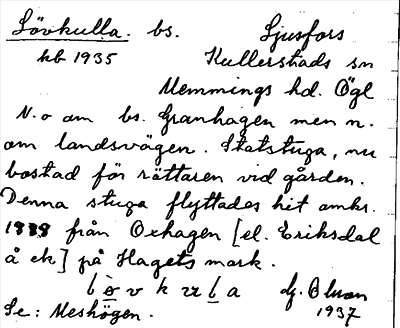 Lövkulla. bs. Ljusfors
kb 1935 Kullerstads sn
Memmings hd. Ögl
N. o am bs. Granhagen men n.
om landsvägen. Statstuga, nu
bostad för rättaren vid gården.
Denna stuga flyttades hit omkr.
från Oxhagen [el. Eriksdal
å ek] på Hagets mark.
1937
Se: Meshögen.